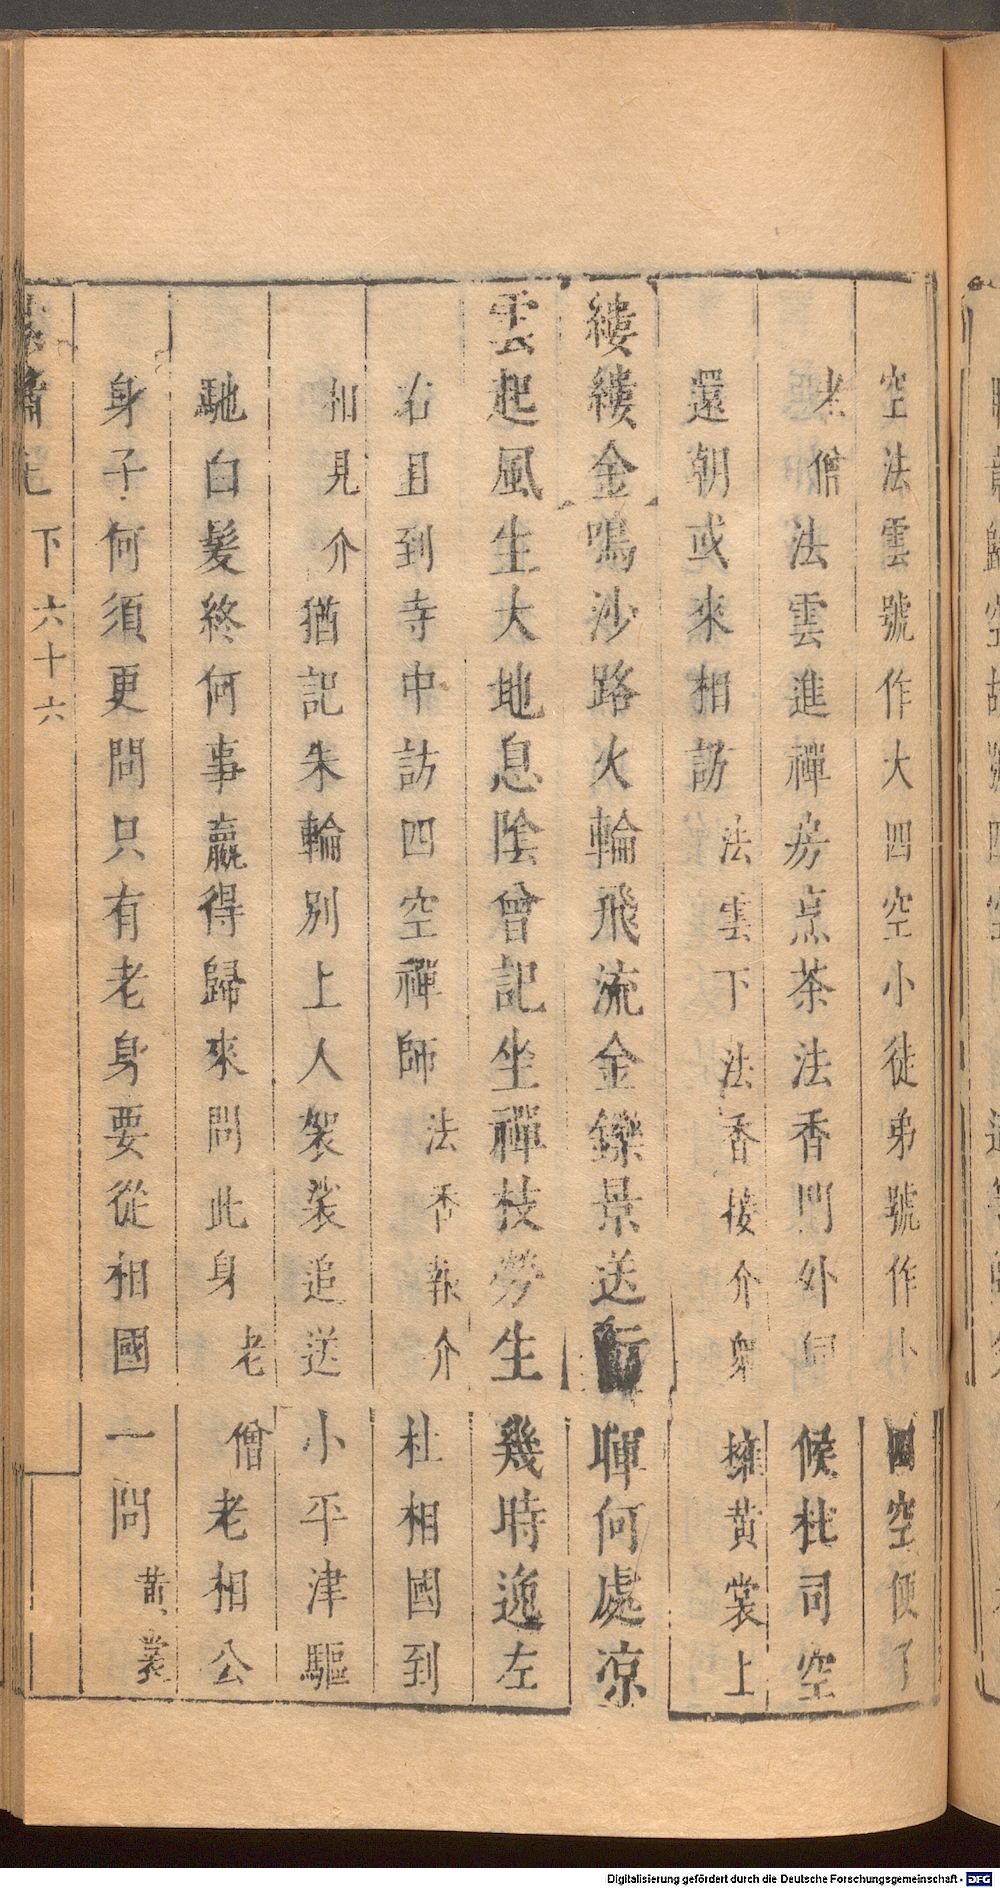 空法雲號作大四空小徒弟號作小四空便了
老僧法雲進禪房烹茶法香門外伺候杜司空
還朝或來相訪法雲下法香接介衆擁黃裳上
縷縷金鳴沙路火輪飛流金鑠景送暉何處凉
雲起風生大地息陰曾記坐禪枝勞生幾時迤左
右且到寺中訪四空禪師法香報介杜相國到
相見介猶記朱輪別上人袈裟追送小平津驅
馳白髮終何事贏得歸來問此身老僧老相公
身子何須更問只有老身要從相國一問黃裳
紫簫記 下 六十六
Digitalisierung gefördert durch die Deutsche Forschungsgemeinschaft - DFG